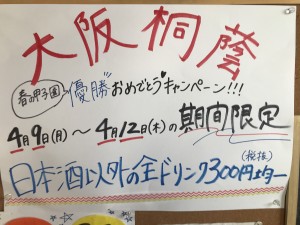 大阪桐蔭
春の甲子園 優勝おめでとうキャンペーン!!!
4月9日(月)～4月12日(木)の期間限定
(税抜)
日本酒以外の全ドリンク300円均一